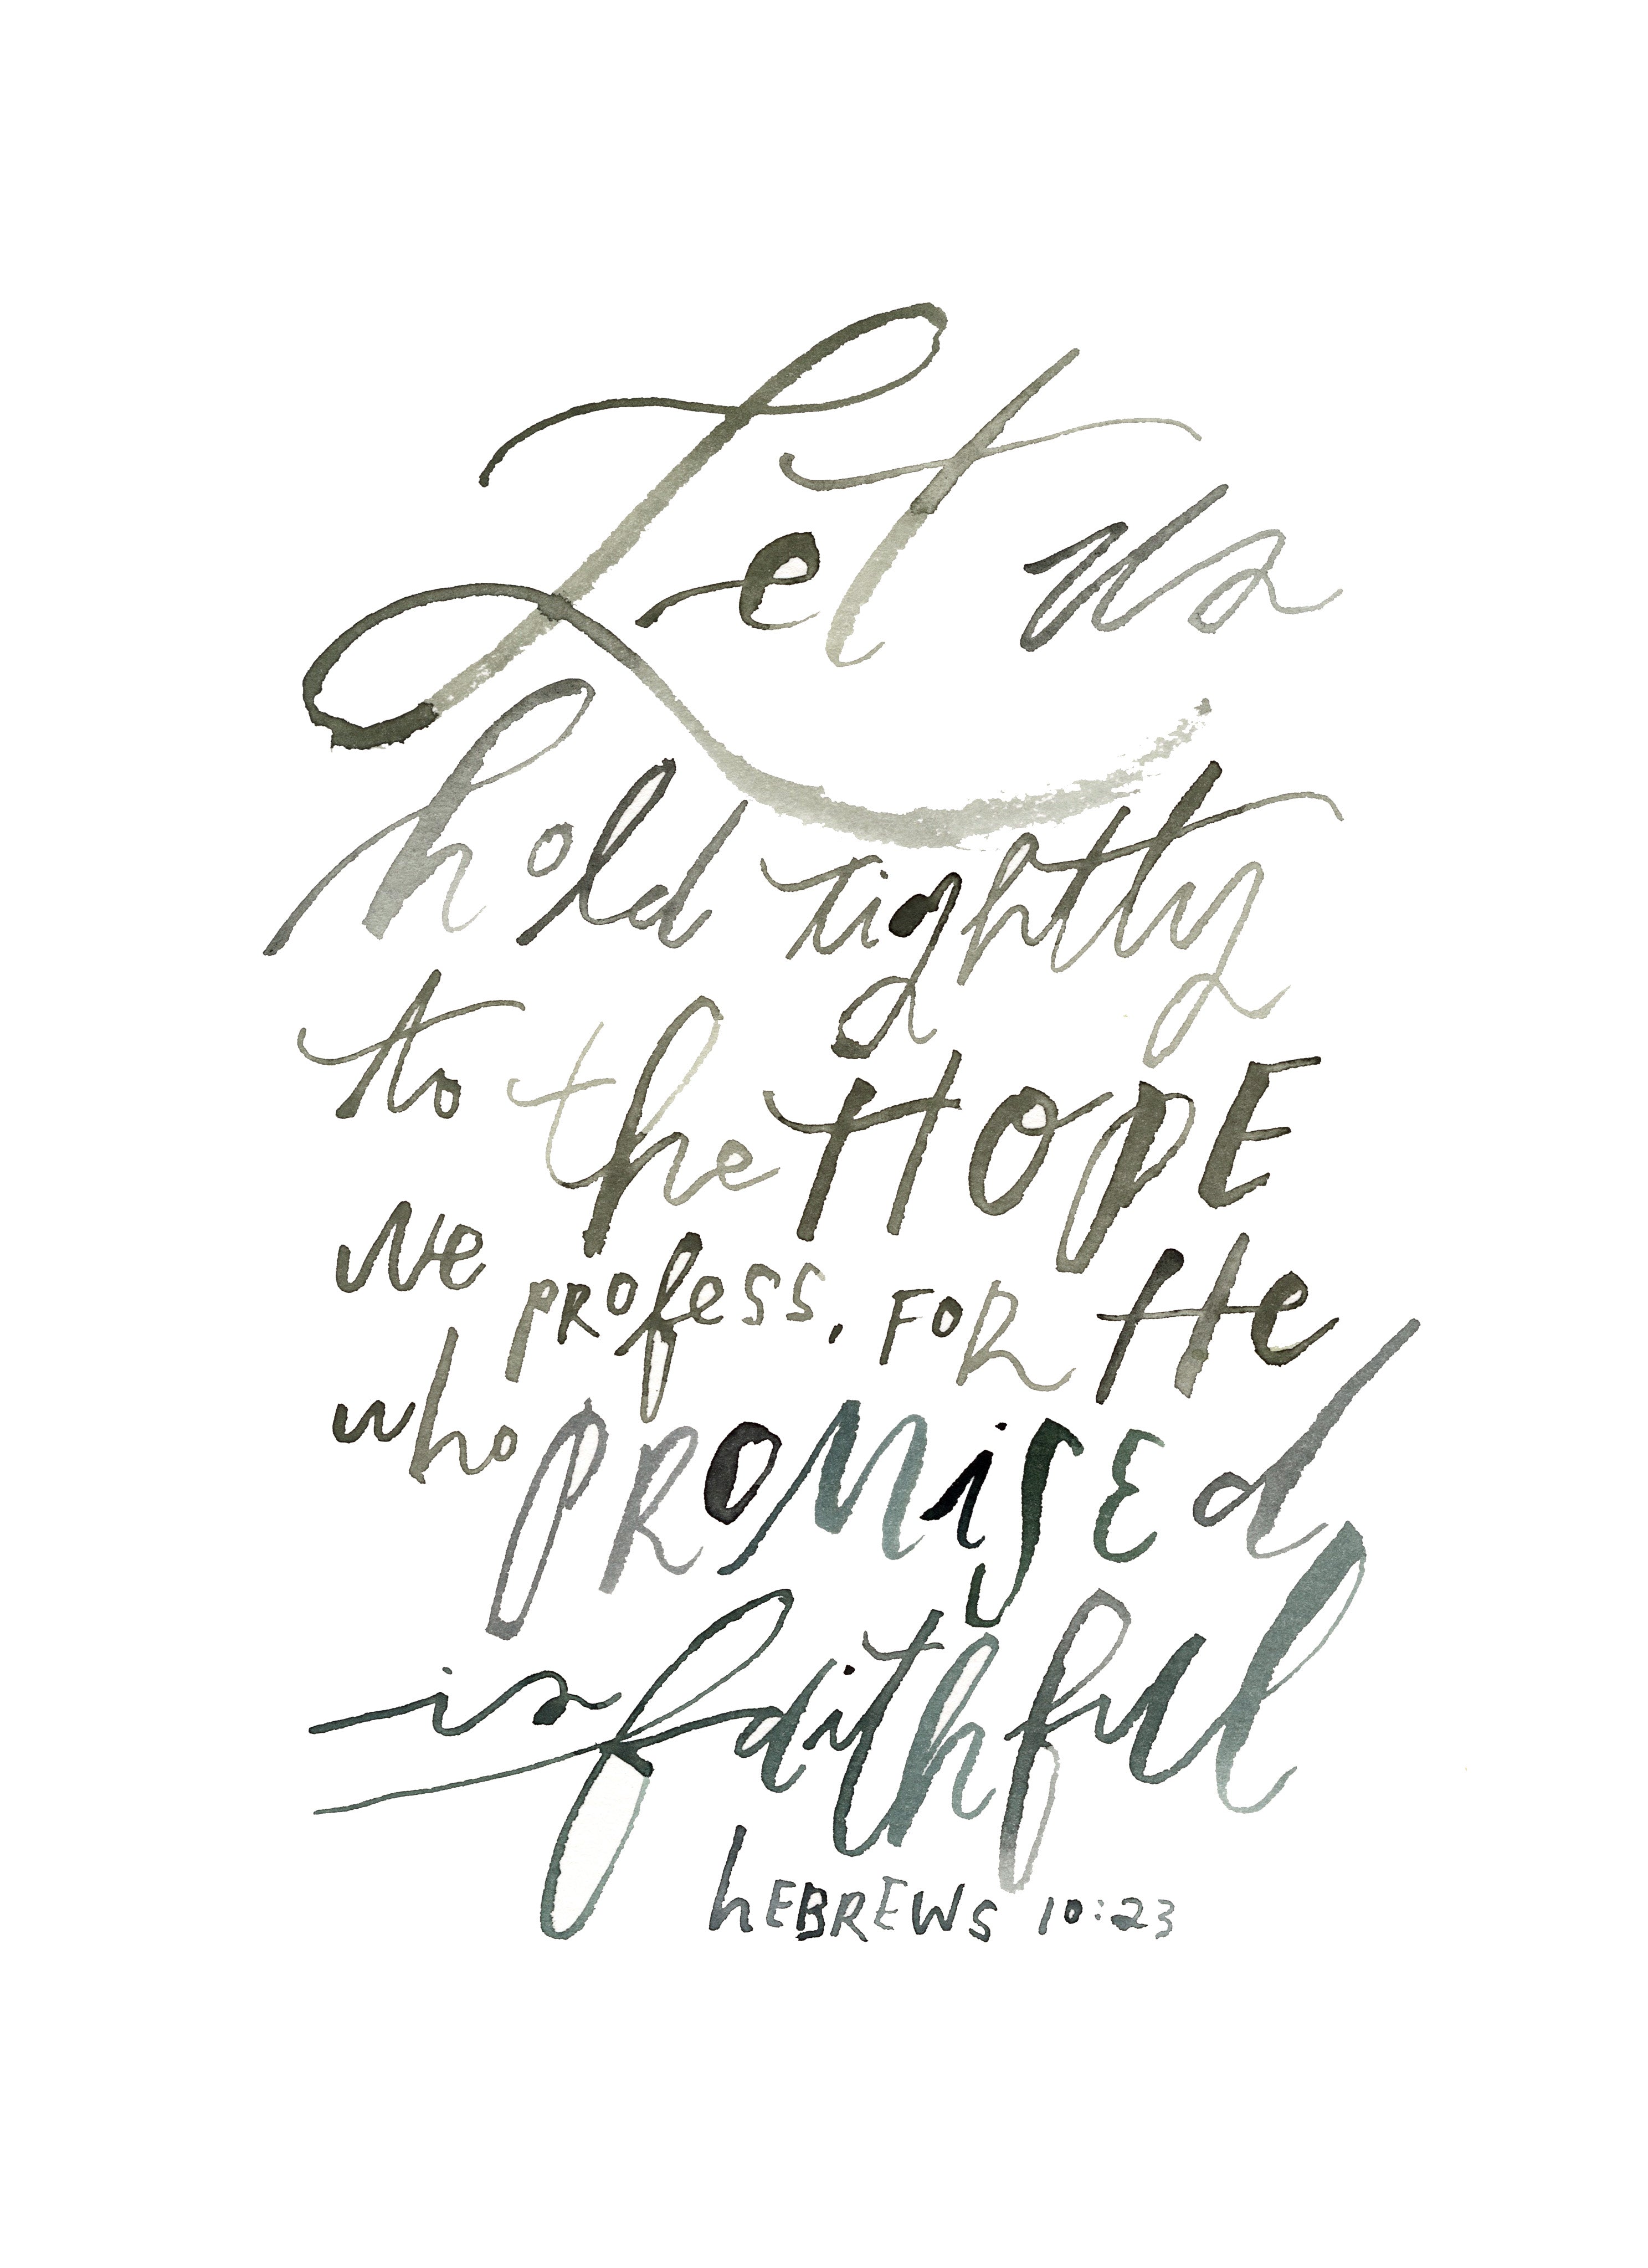 Let us
hold tightly
to the HOPE
we PROfess, FOR He
who PROMiSEd
is faithful
hEBREWS 10:23